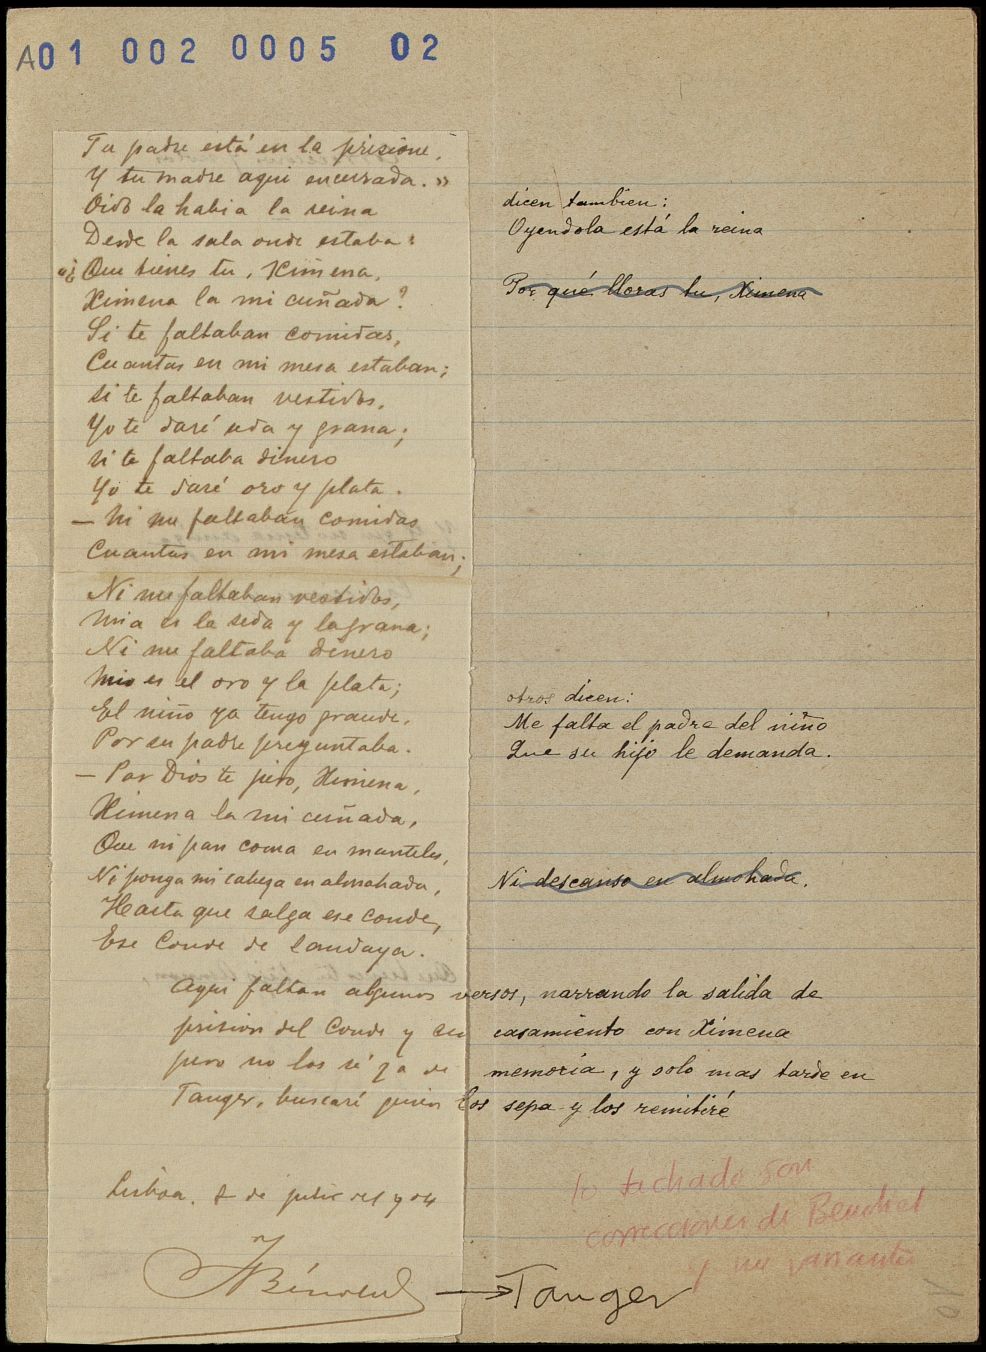 A01 002 0005 02
Tu padre está en la prisione,
Y tu madre aqui encerrada.»
Oido la habia la reina
Desde la sala onde estaba:
dicen tambien:
Oyendola está la reina
"¿Que tienes tu, Ximena,
Por qué lloras tu, Ximena
Ximena la mi cuñada?
Si te faltaban comidas,
Cuantas en mi mesa estaban;
si te faltaban vestidos,
Yo te daré seda y grana;
si te faltaba dinero
Yo te daré oro y plata.
— Ni me faltaban comidas
Cuantas en mi mesa estaban;
Ni me faltaban vestidos,
Mia es la seda y la grana;
Ni me faltaba dinero
Mio es el oro y la plata;
El niño ya tengo grande,
Por su padre preguntaba.
otros dicen:
Me falta el padre del niño
Que su hijo le demanda.
— Por Dios te pido, Ximena,
Ximena la mi cuñada,
Que ni pan coma en manteles,
Ni ponga mi cabeza en almohada,
Ni descanso en almohada.
Hasta que salga ese conde,
Ese Conde de Landaya.
Aqui faltan algunos versos, narrando la salida de
prision del Conde y su casamiento con Ximena
pero no los sé ya de memoria, y solo mas tarde en
Tanger, buscaré quien los sepa y los remitiré
Lisboa, 2 de julio de 1904
JBénoliel → Tanger
lo tachado son
correcciones de Benoliel
y no variantes